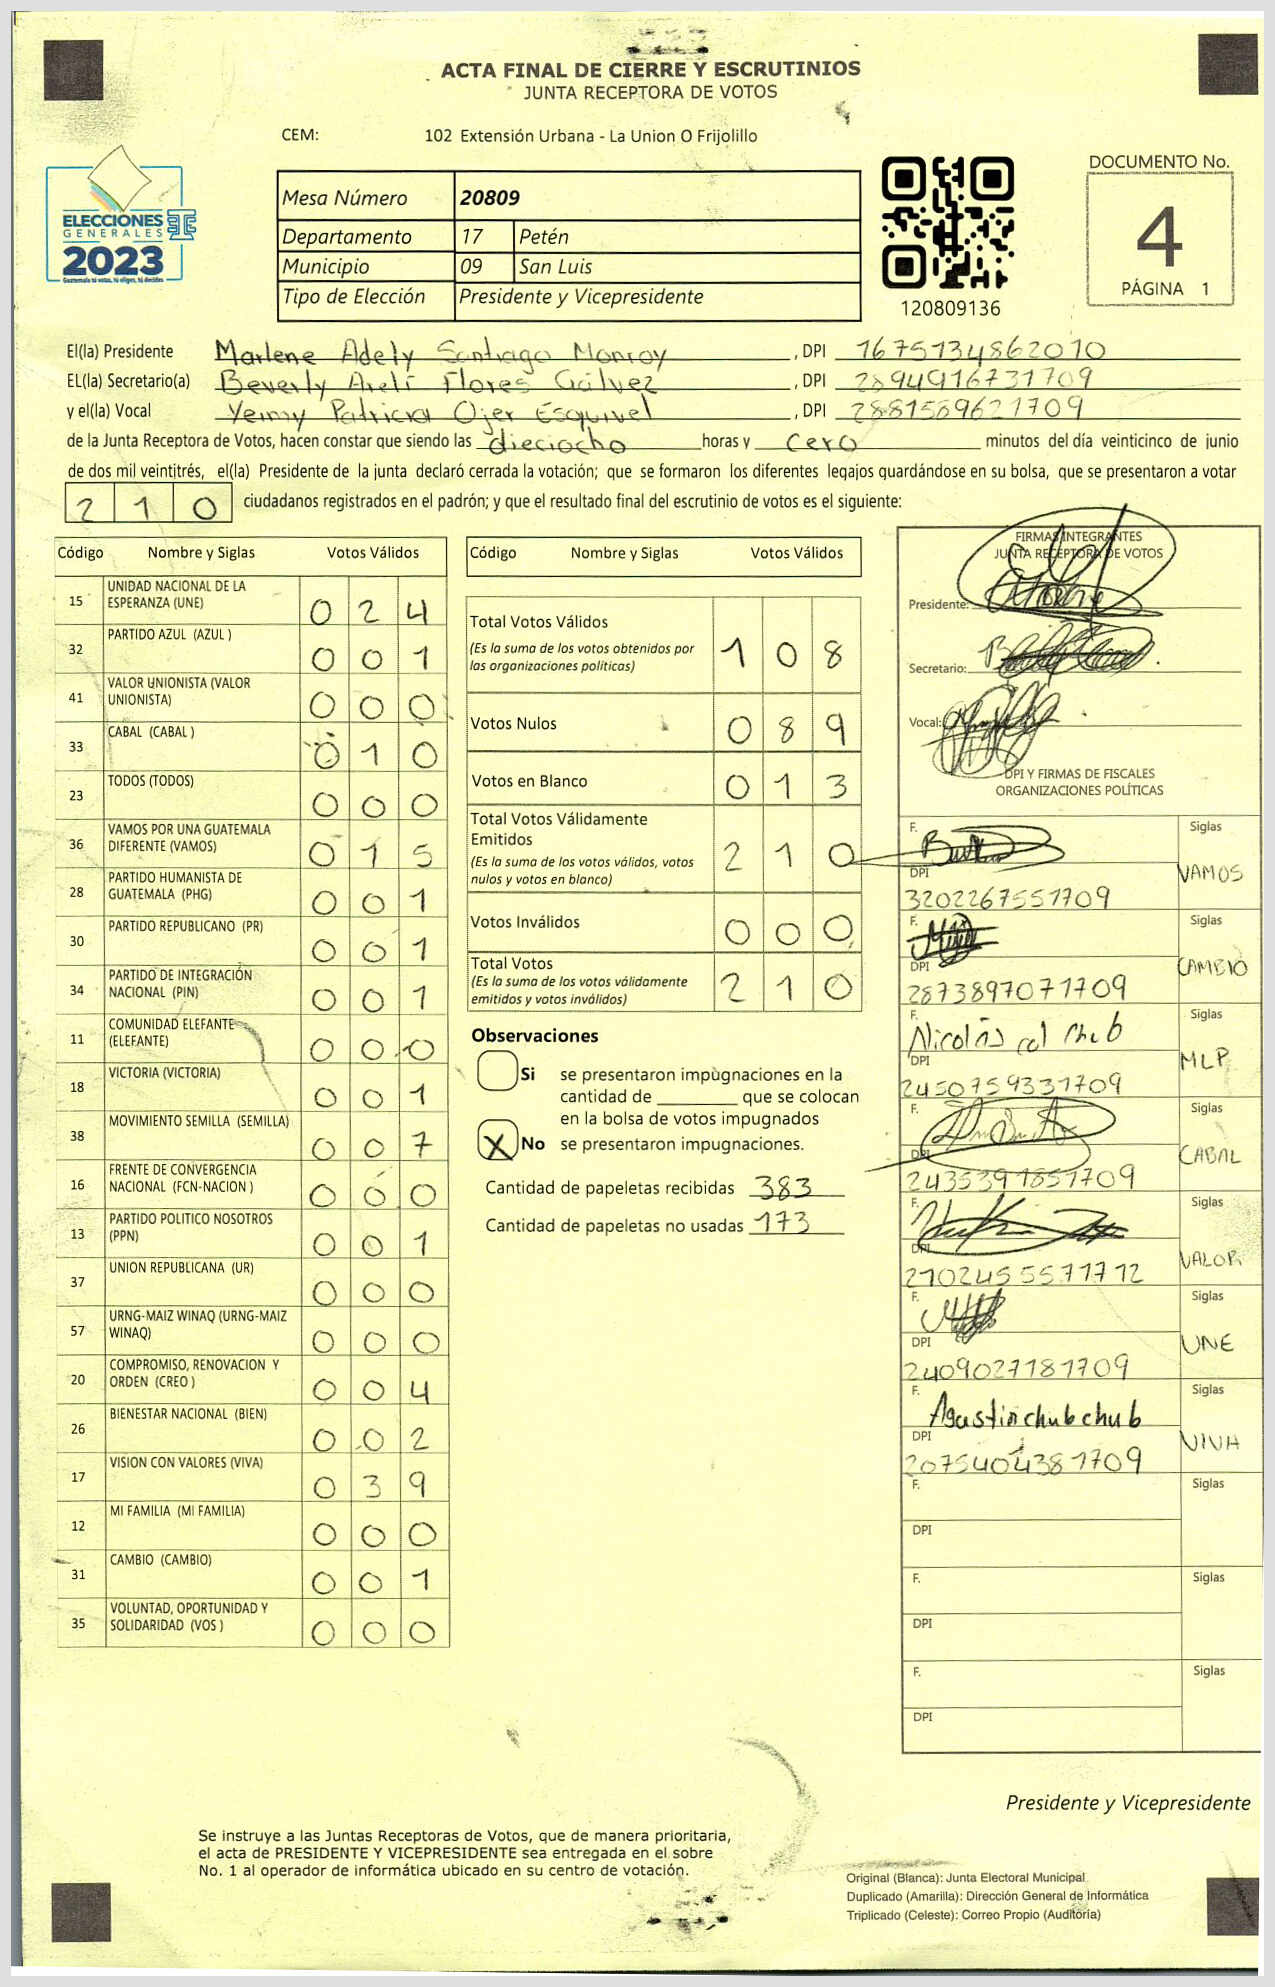 ACTA FINAL DE CIERRE Y ESCRUTINIOS
JUNTA RECEPTORA DE VOTOS
CEM: 102 Extensión Urbana - La Union O Frijolillo
ELECCIONES
GENERALES
2023
Guatemala tú votas, tú eliges, tú decides
Mesa Número 20809
Departamento 17 Petén
Municipio 09 San Luis
Tipo de Elección Presidente y Vicepresidente
120809136
DOCUMENTO No.
4
PÁGINA 1
El(la) Presidente Marlene Adely Santiago Monroy , DPI 1675134862010
EL(la) Secretario(a) Beverly Arelí Flores Gálvez , DPI 2894916731709
y el(la) Vocal Yeimy Patricia Ojer Esquivel , DPI 2881589621709
de la Junta Receptora de Votos, hacen constar que siendo las dieciocho horas y cero minutos del día veinticinco de junio
de dos mil veintitrés, el(la) Presidente de la junta declaró cerrada la votación; que se formaron los diferentes legajos quardándose en su bolsa, que se presentaron a votar
210 ciudadanos registrados en el padrón; y que el resultado final del escrutinio de votos es el siguiente:
Código Nombre y Siglas Votos Válidos
15 UNIDAD NACIONAL DE LA ESPERANZA (UNE) 0 2 4
32 PARTIDO AZUL (AZUL ) 0 0 1
41 VALOR UNIONISTA (VALOR UNIONISTA) 0 0 0
33 CABAL (CABAL ) 0 1 0
23 TODOS (TODOS) 0 0 0
36 VAMOS POR UNA GUATEMALA DIFERENTE (VAMOS) 0 1 5
28 PARTIDO HUMANISTA DE GUATEMALA (PHG) 0 0 1
30 PARTIDO REPUBLICANO (PR) 0 0 1
34 PARTIDO DE INTEGRACIÓN NACIONAL (PIN) 0 0 1
11 COMUNIDAD ELEFANTE (ELEFANTE) 0 0 0
18 VICTORIA (VICTORIA) 0 0 1
38 MOVIMIENTO SEMILLA (SEMILLA) 0 0 7
16 FRENTE DE CONVERGENCIA NACIONAL (FCN-NACION ) 0 0 0
13 PARTIDO POLITICO NOSOTROS (PPN) 0 0 1
37 UNION REPUBLICANA (UR) 0 0 0
57 URNG-MAIZ WINAQ (URNG-MAIZ WINAQ) 0 0 0
20 COMPROMISO, RENOVACION Y ORDEN (CREO ) 0 0 4
26 BIENESTAR NACIONAL (BIEN) 0 0 2
17 VISION CON VALORES (VIVA) 0 3 9
12 MI FAMILIA (MI FAMILIA) 0 0 0
31 CAMBIO (CAMBIO) 0 0 1
35 VOLUNTAD, OPORTUNIDAD Y SOLIDARIDAD (VOS ) 0 0 0
Código Nombre y Siglas Votos Válidos
Total Votos Válidos 1 0 8
(Es la suma de los votos obtenidos por
las organizaciones políticas)
Votos Nulos 0 8 9
Votos en Blanco 0 1 3
Total Votos Válidamente
Emitidos 2 1 0
(Es la suma de los votos válidos, votos
nulos y votos en blanco)
Votos Inválidos 0 0 0
Total Votos 2 1 0
(Es la suma de los votos válidamente
emitidos y votos inválidos)
Observaciones
Si se presentaron impugnaciones en la
cantidad de ________ que se colocan
en la bolsa de votos impugnados
X No se presentaron impugnaciones.
Cantidad de papeletas recibidas 383
Cantidad de papeletas no usadas 173
FIRMAS INTEGRANTES
JUNTA RECEPTORA DE VOTOS
Presidente:
Secretario:
Vocal:
DPI Y FIRMAS DE FISCALES
ORGANIZACIONES POLÍTICAS
F. Siglas
DPI VAMOS
3202267551709
F. Siglas
DPI CAMBIO
2873897071709
F. Nicolás cal chub Siglas
DPI MLP
2450759331709
F. Siglas
DPI CABAL
2435391851709
F. Siglas
DPI VALOR
2702455571712
F. Siglas
DPI UNE
2409027181709
F. Agustin chub chub Siglas
DPI VIVA
2075404381709
F. Siglas
DPI
F. Siglas
DPI
F. Siglas
DPI
Presidente y Vicepresidente
Se instruye a las Juntas Receptoras de Votos, que de manera prioritaria,
el acta de PRESIDENTE Y VICEPRESIDENTE sea entregada en el sobre
No. 1 al operador de informática ubicado en su centro de votación.
Original (Blanca): Junta Electoral Municipal
Duplicado (Amarilla): Dirección General de Informática
Triplicado (Celeste): Correo Propio (Auditoría)